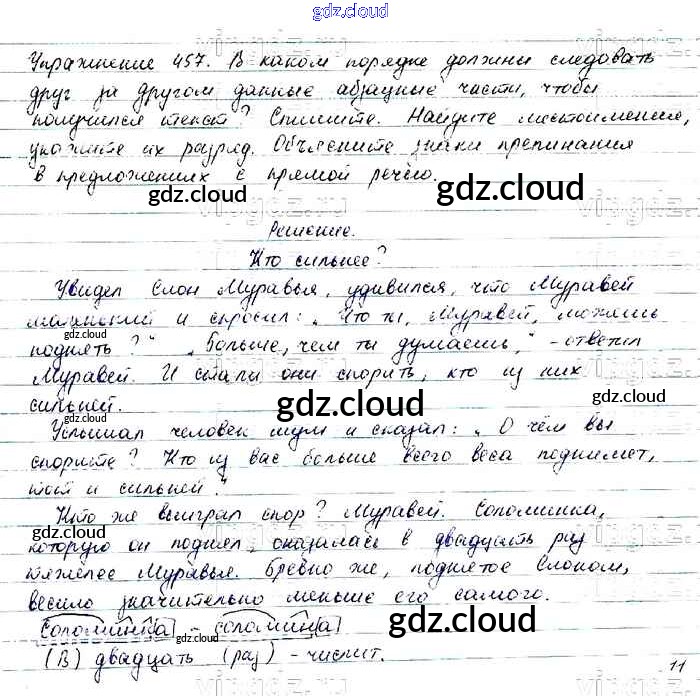 gdz.cloud
Упражнение 457. В каком порядке должны следовать
друг за другом данные абзацные части, чтобы
получился текст? Спишите. Найдите местоимения,
укажите их разряд. Объясните знаки препинания
в предложениях с прямой речью.
gdz.cloud gdz.cloud
Решение.
Кто сильнее?
Увидел Слон Муравья, удивился, что Муравей
маленький и спросил: „Что ты, Муравей, можешь
gdz.cloud
поднять?" „Больше, чем ты думаешь," - ответил
Муравей. И стали они спорить, кто из них
сильней.
gdz.cloud gdz.cloud
Услышал человек шум и сказал: „О чём вы
спорите? Кто из вас больше всего веса поднимет,
тот и сильней".
Кто же выиграл спор? Муравей. Соломинка,
gdz.cloud
которую он поднял, оказалась в двадцать раз
тяжелее Муравья. Бревно же, поднятое Слоном,
весило значительно меньше его самого.
gdz.cloud gdz.cloud
соломин(к)а - соломин(к)а
gdz.cloud
(В) двадцать (раз) - числит.
11